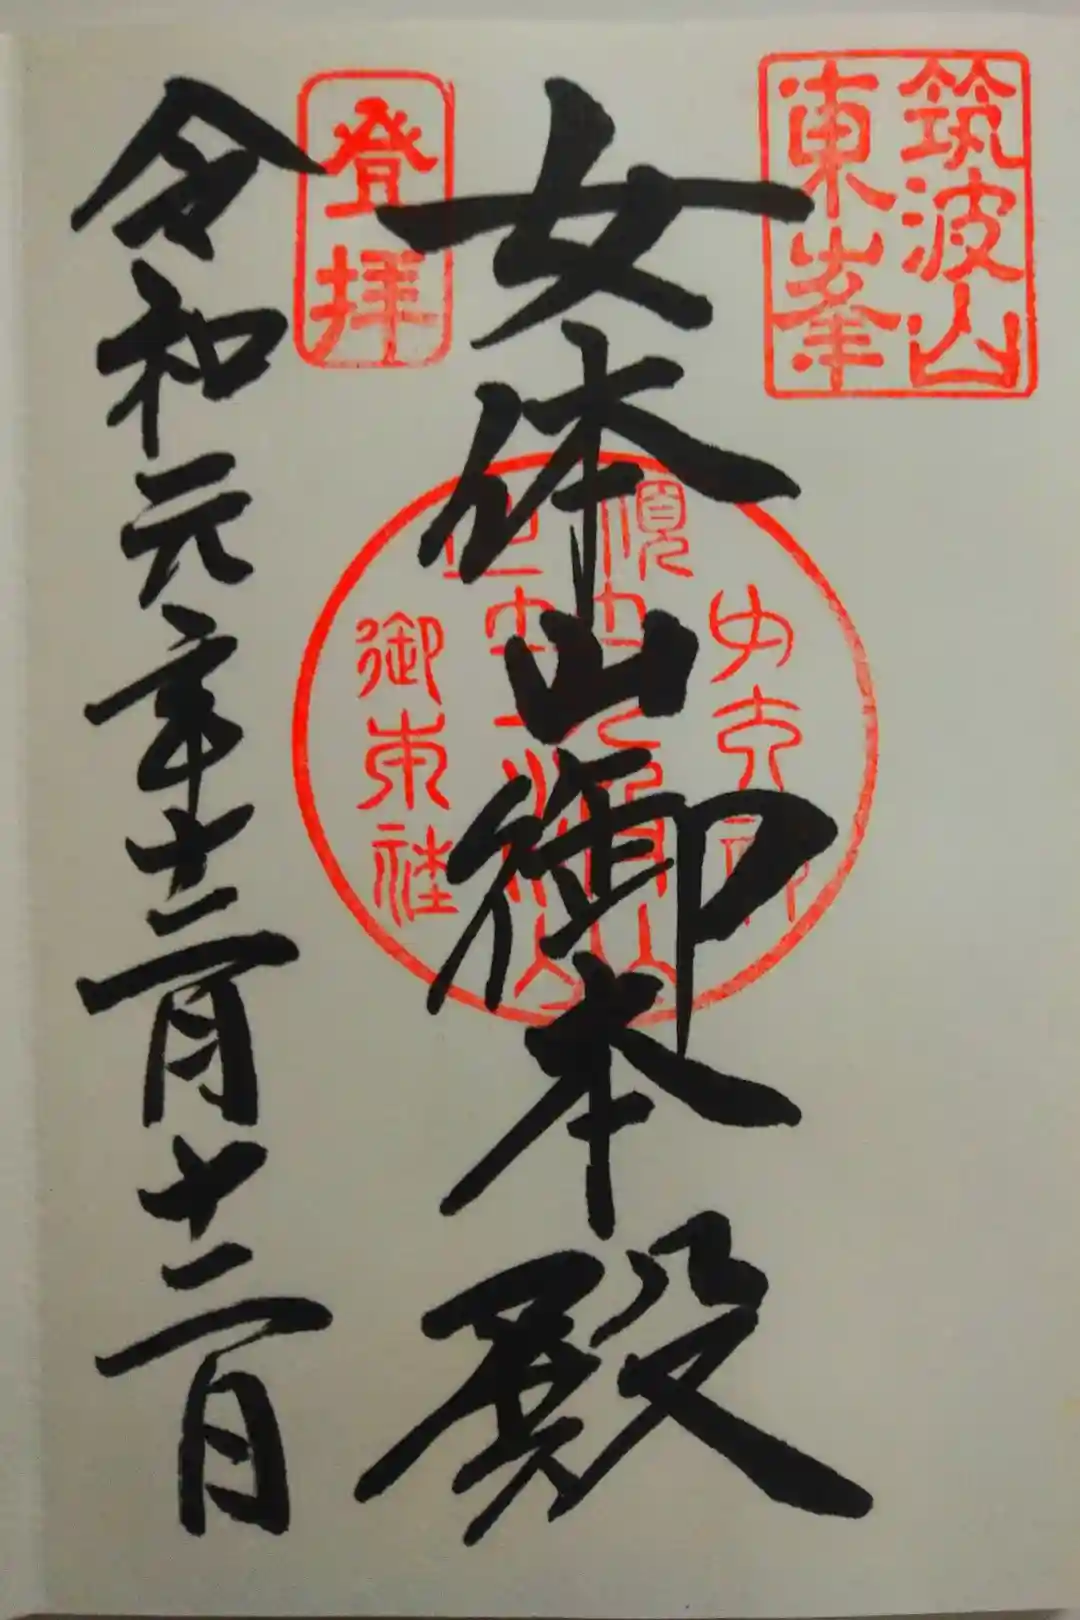 筑波山
東峯
女体山御本殿
登拝
御東社
令和元年十二月十二日